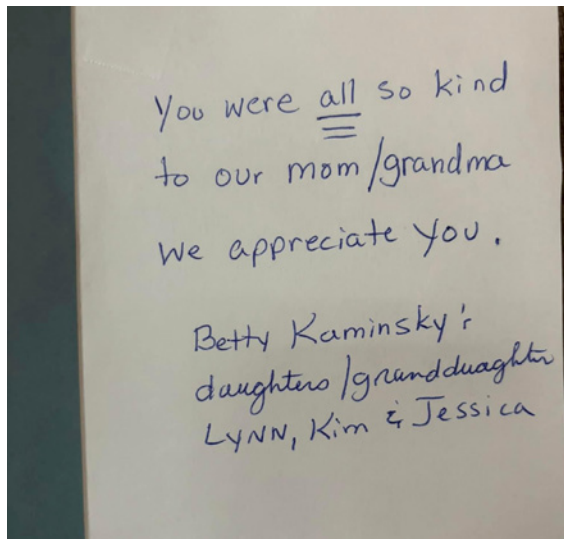 You were all so kind
to our mom/grandma
We appreciate you.
Betty Kaminsky's
daughters/grandduaghter
LYNN, Kim & Jessica